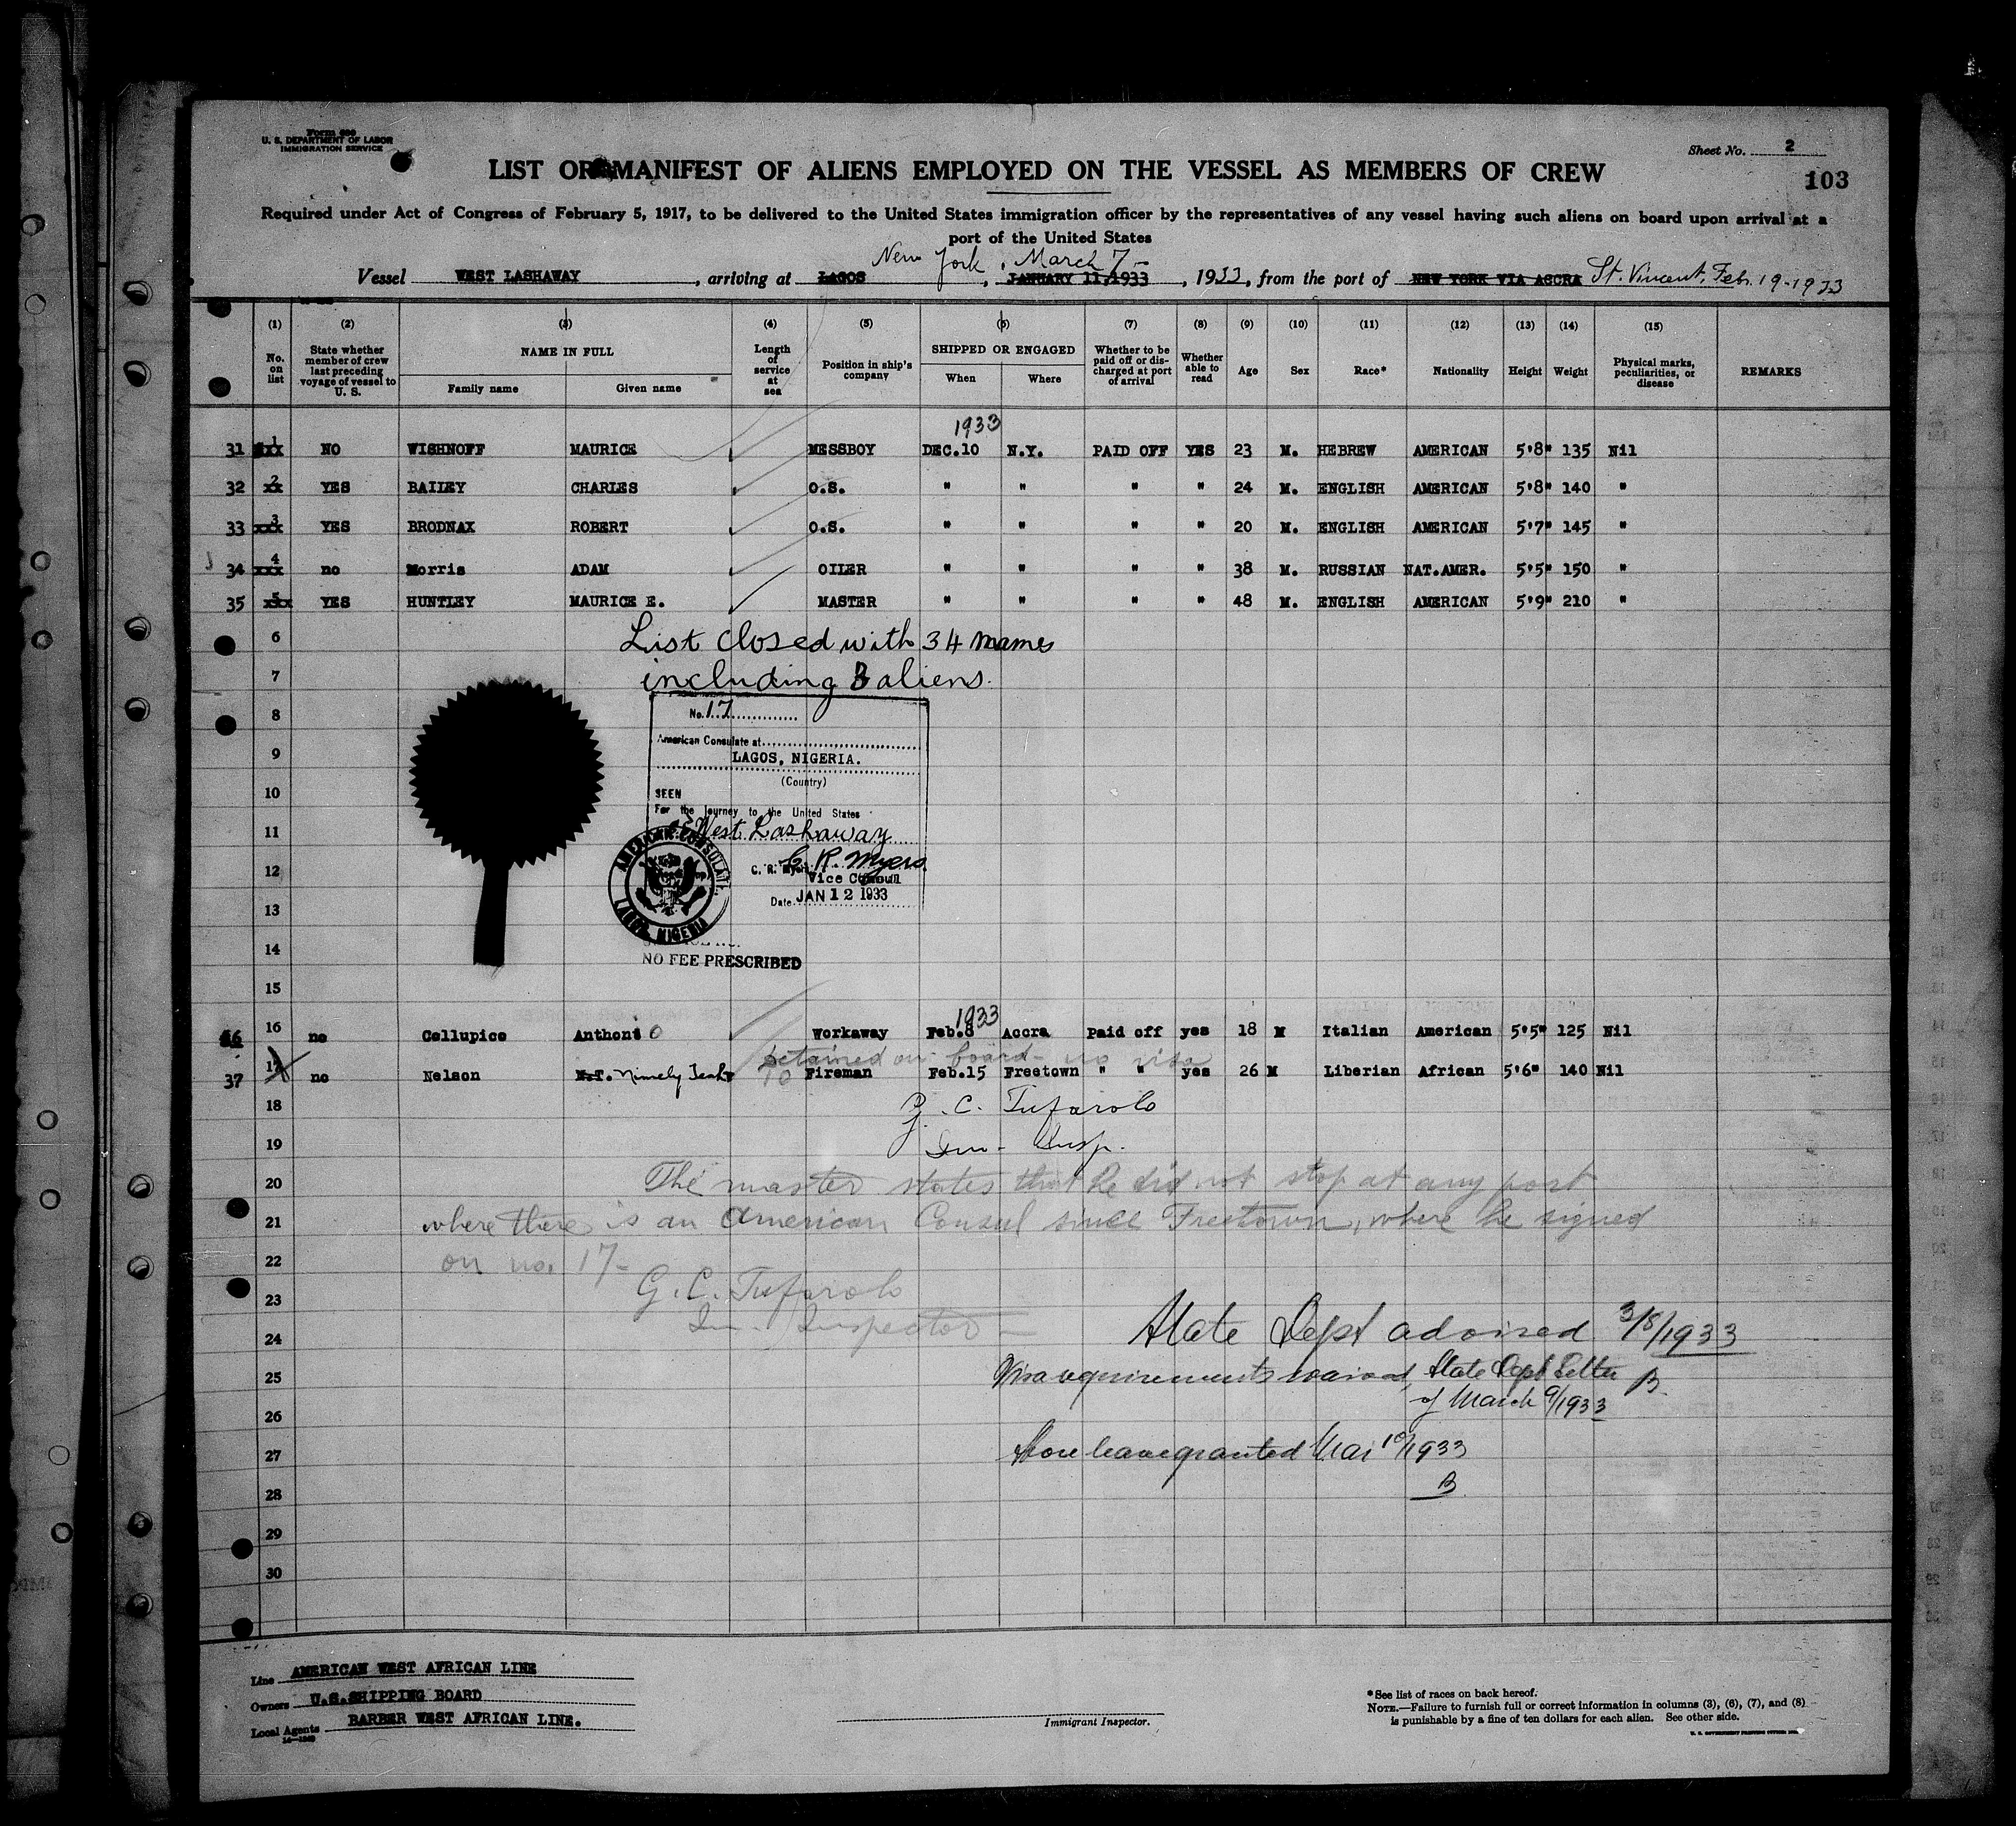 Form 680
U. S. DEPARTMENT OF LABOR
IMMIGRATION SERVICE
Sheet No. 2
103
LIST OR MANIFEST OF ALIENS EMPLOYED ON THE VESSEL AS MEMBERS OF CREW
Required under Act of Congress of February 5, 1917, to be delivered to the United States immigration officer by the representatives of any vessel having such aliens on board upon arrival at a
port of the United States
New York, March 7-
Vessel WEST LASHAWAY, arriving at LAGOS, JANUARY 11,1933, 1933, from the port of NEW YORK VIA ACCRA St. Vincent, Feb. 19-1933
(1) (2) (3) (4) (5) (6) (7) (8) (9) (10) (11) (12) (13) (14) (15)
No. on list State whether member of crew last preceding voyage of vessel to U. S. NAME IN FULL Family name Given name Length of service at sea Position in ship's company SHIPPED OR ENGAGED When Where Whether to be paid off or discharged at port of arrival Whether able to read Age Sex Race* Nationality Height Weight Physical marks, peculiarities, or disease REMARKS
1933
31 1 NO WISHNOFF MAURICE MESSBOY DEC.10 N.Y. PAID OFF YES 23 M. HEBREW AMERICAN 5'8" 135 Nil
32 2 YES BAILEY CHARLES O.S. " " " " 24 M. ENGLISH AMERICAN 5'8" 140 "
33 3 YES BRODNAX ROBERT O.S. " " " " 20 M. ENGLISH AMERICAN 5'7" 145 "
34 4 no Morris ADAM OILER " " " " 38 M. RUSSIAN NAT.AMER. 5'5" 150 "
35 5 YES HUNTLEY MAURICE E. MASTER " " " " 48 M. ENGLISH AMERICAN 5'9" 210 "
6 List closed with 34 names
7 including 3 aliens.
8 No. 17
American Consulate at
9 LAGOS, NIGERIA.
(Country)
10 SEEN
For the journey to the United States
11 West Lashaway
C. R. Myers
12 C. R. Myers
Vice Consul
13 Date JAN 12 1933
AMERICAN CONSULATE, LAGOS, NIGERIA
14
NO FEE PRESCRIBED
15
1933
36 16 no Collupice Anthoni o Workaway Feb.8 Accra Paid off yes 18 M Italian American 5'5" 125 Nil
Detained on board- no visa
37 17 no Nelson N.T. Nimely Fireman Feb.15 Freetown " " yes 26 M Liberian African 5'6" 140 Nil
18 G. C. Tufarolo
19 Im. Insp.
20 The master states that he did not stop at any port
21 where there is an American Consul since Freetown, where he signed
22 on no. 17-
G. C. Tufarolo
23
Im. Inspector
24 State Dept advised 3/8/1933
25 Visa requirements waived, State Dept Letter B
26 of March 9/1933
27 Shore leave granted Mar 10/1933
28 B
29
30
Line AMERICAN WEST AFRICAN LINE
Owners U.S.SHIPPING BOARD
Local Agents BARBER WEST AFRICAN LINE.
Immigrant Inspector.
*See list of races on back hereof.
NOTE.—Failure to furnish full or correct information in columns (3), (6), (7), and (8)
is punishable by a fine of ten dollars for each alien. See other side.